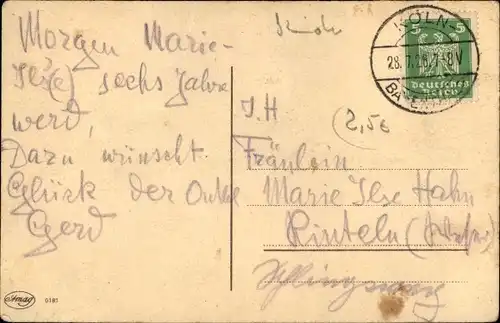 Morgen Marie-
Ilse) sechs Jahre
werd,
Dazu wünscht
Glück der Onkel
Gerd
Kinder
KÖLN-
28.7.26.7-8V
BAYENTHAL
5 5
Deutsches
Reich
I.H
2,5€
Fräulein
Marie Ilse Hahn
Rinteln (Weser)
Amag
0181